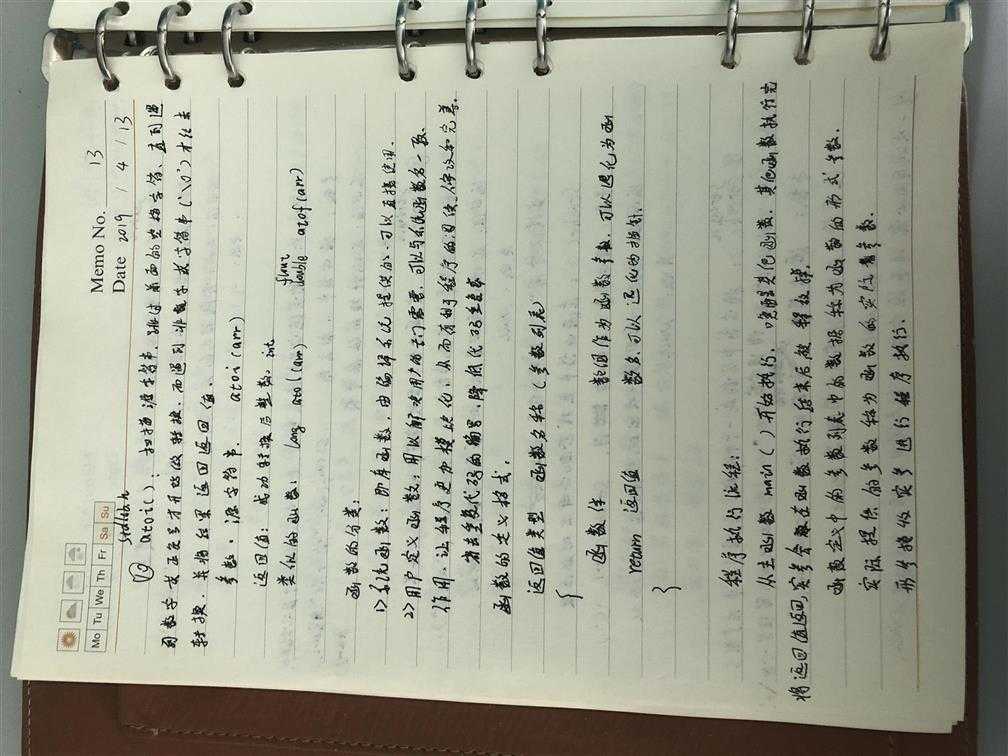 Memo No. 13
Mo Tu We Th Fr Sa Su
Date 2019 / 4 / 13
stdlib.h
⑫ atoi(): 扫描源字符串, 跳过前面的空格字符, 直到遇
到数字或正负号才开始做转换, 而遇到非数字或字符串('\0')才结束
转换, 并将结果返回返回值.
参数: 源字符串. atoi(arr)
返回值: 成功转换后整数, int
float
类似的函数: long atol(arr) double atof(arr)
函数的分类:
1>系统函数: 即库函数, 由编译系统提供的, 可以直接使用.
2>用户定义函数: 用以解决用户的专门需要, 可以与系统函数名一致.
作用, 让程序更加模块化, 从而有利于程序的阅读、修改和完善.
省去重复代码的编写, 降低代码重复率
函数的定义格式:
返回值类型 函数名称 (参数列表)
{
函数体 数组作为函数参数, 可以退化为函
return 返回值 数名, 可以退化为指针.
}
程序执行流程:
从主函数 main()开始执行, 碰到其他函数, 其他函数执行完
将返回值返回, 实参会随在函数执行结束后被释放掉.
函数定义中的参数列表中的数据称为函数的形式参数.
实际提供的参数称为函数的实际参数.
形参接收实参进行程序执行.